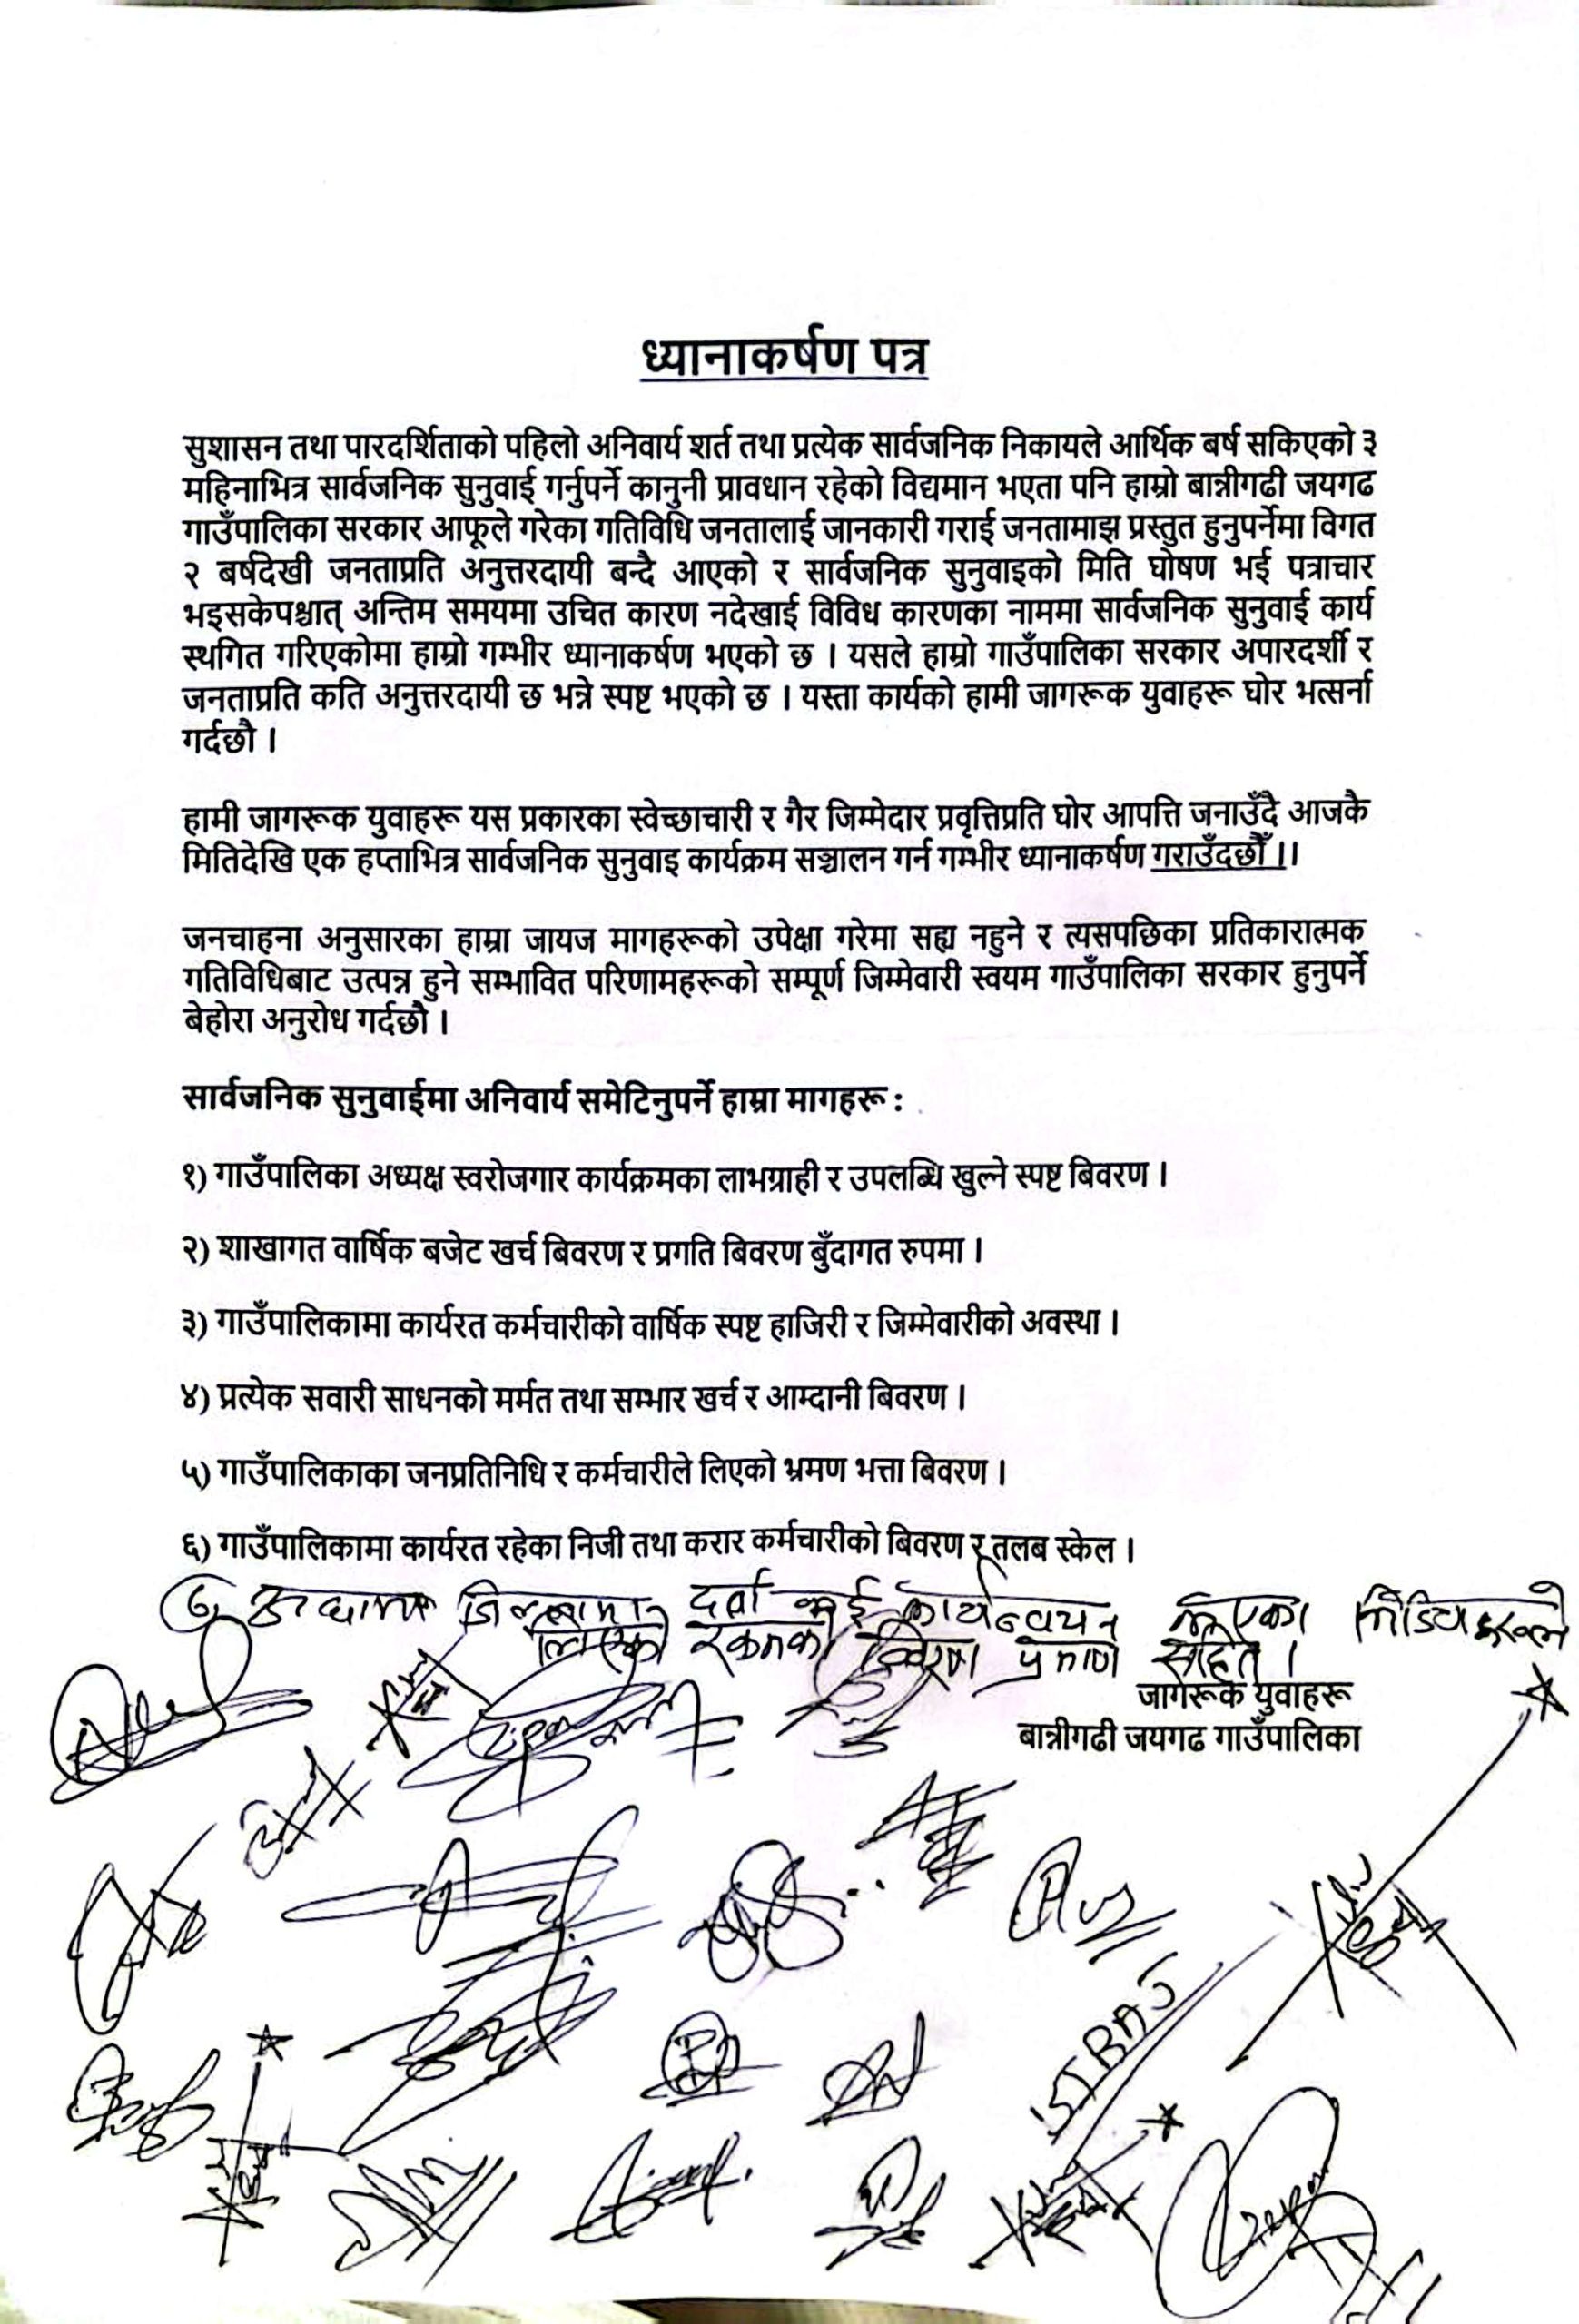 ध्यानाकर्षण पत्र
सुशासन तथा पारदर्शिताको पहिलो अनिवार्य शर्त तथा प्रत्येक सार्वजनिक निकायले आर्थिक बर्ष सकिएको ३
महिनाभित्र सार्वजनिक सुनुवाई गर्नुपर्ने कानुनी प्रावधान रहेको विद्यमान भएता पनि हाम्रो बान्नीगढी जयगढ
गाउँपालिका सरकार आफूले गरेका गतिविधि जनतालाई जानकारी गराई जनतामाझ प्रस्तुत हुनुपर्नेमा विगत
२ बर्षदेखी जनताप्रति अनुत्तरदायी बन्दै आएको र सार्वजनिक सुनुवाइको मिति घोषण भई पत्राचार
भइसकेपश्चात् अन्तिम समयमा उचित कारण नदेखाई विविध कारणका नाममा सार्वजनिक सुनुवाई कार्य
स्थगित गरिएकोमा हाम्रो गम्भीर ध्यानाकर्षण भएको छ । यसले हाम्रो गाउँपालिका सरकार अपारदर्शी र
जनताप्रति कति अनुत्तरदायी छ भन्ने स्पष्ट भएको छ । यस्ता कार्यको हामी जागरूक युवाहरू घोर भत्सर्ना
गर्दछौ ।
हामी जागरूक युवाहरू यस प्रकारका स्वेच्छाचारी र गैर जिम्मेदार प्रवृत्तिप्रति घोर आपत्ति जनाउँदै आजकै
मितिदेखि एक हप्ताभित्र सार्वजनिक सुनुवाइ कार्यक्रम सञ्चालन गर्न गम्भीर ध्यानाकर्षण गराउँदछौँ ।।
जनचाहना अनुसारका हाम्रा जायज मागहरूको उपेक्षा गरेमा सह्य नहुने र त्यसपछिका प्रतिकारात्मक
गतिविधिबाट उत्पन्न हुने सम्भावित परिणामहरूको सम्पूर्ण जिम्मेवारी स्वयम गाउँपालिका सरकार हुनुपर्ने
बेहोरा अनुरोध गर्दछौ ।
सार्वजनिक सुनुवाईमा अनिवार्य समेटिनुपर्ने हाम्रा मागहरू :
१) गाउँपालिका अध्यक्ष स्वरोजगार कार्यक्रमका लाभग्राही र उपलब्धि खुल्ने स्पष्ट बिवरण ।
२) शाखागत वार्षिक बजेट खर्च बिवरण र प्रगति बिवरण बुँदागत रुपमा ।
३) गाउँपालिकामा कार्यरत कर्मचारीको वार्षिक स्पष्ट हाजिरी र जिम्मेवारीको अवस्था ।
४) प्रत्येक सवारी साधनको मर्मत तथा सम्भार खर्च र आम्दानी बिवरण ।
५) गाउँपालिकाका जनप्रतिनिधि र कर्मचारीले लिएको भ्रमण भत्ता बिवरण ।
६) गाउँपालिकामा कार्यरत रहेका निजी तथा करार कर्मचारीको बिवरण र तलब स्केल ।
जिल्लामा दर्ता भई कार्यन्वयन भएका मिडियाहरूले
लिएको रकमको विवरण प्रमाण सहित ।
जागरूक युवाहरू
बान्नीगढी जयगढ गाउँपालिका